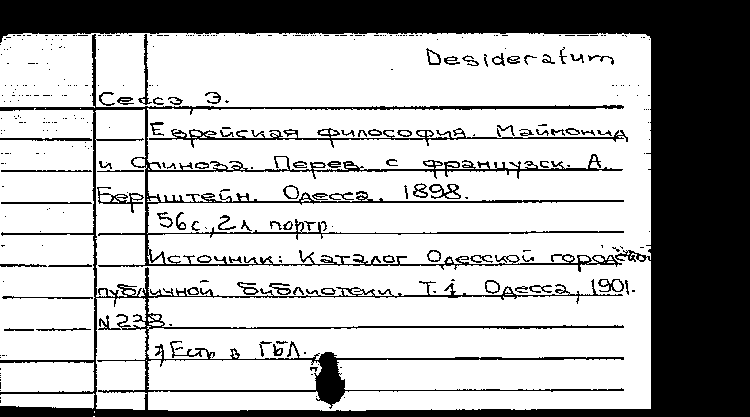 Desideratum
Сессэ, Э.
Еврейская философия. Маймонид
и Спиноза. Перев. с французск. А.
Бернштейн. Одесса. 1898.
56 с., 2 л. портр.
Источник: Каталог Одесской городской
публичной библиотеки. Т. 1. Одесса, 1901.
N 238.
Есть в ГБЛ.